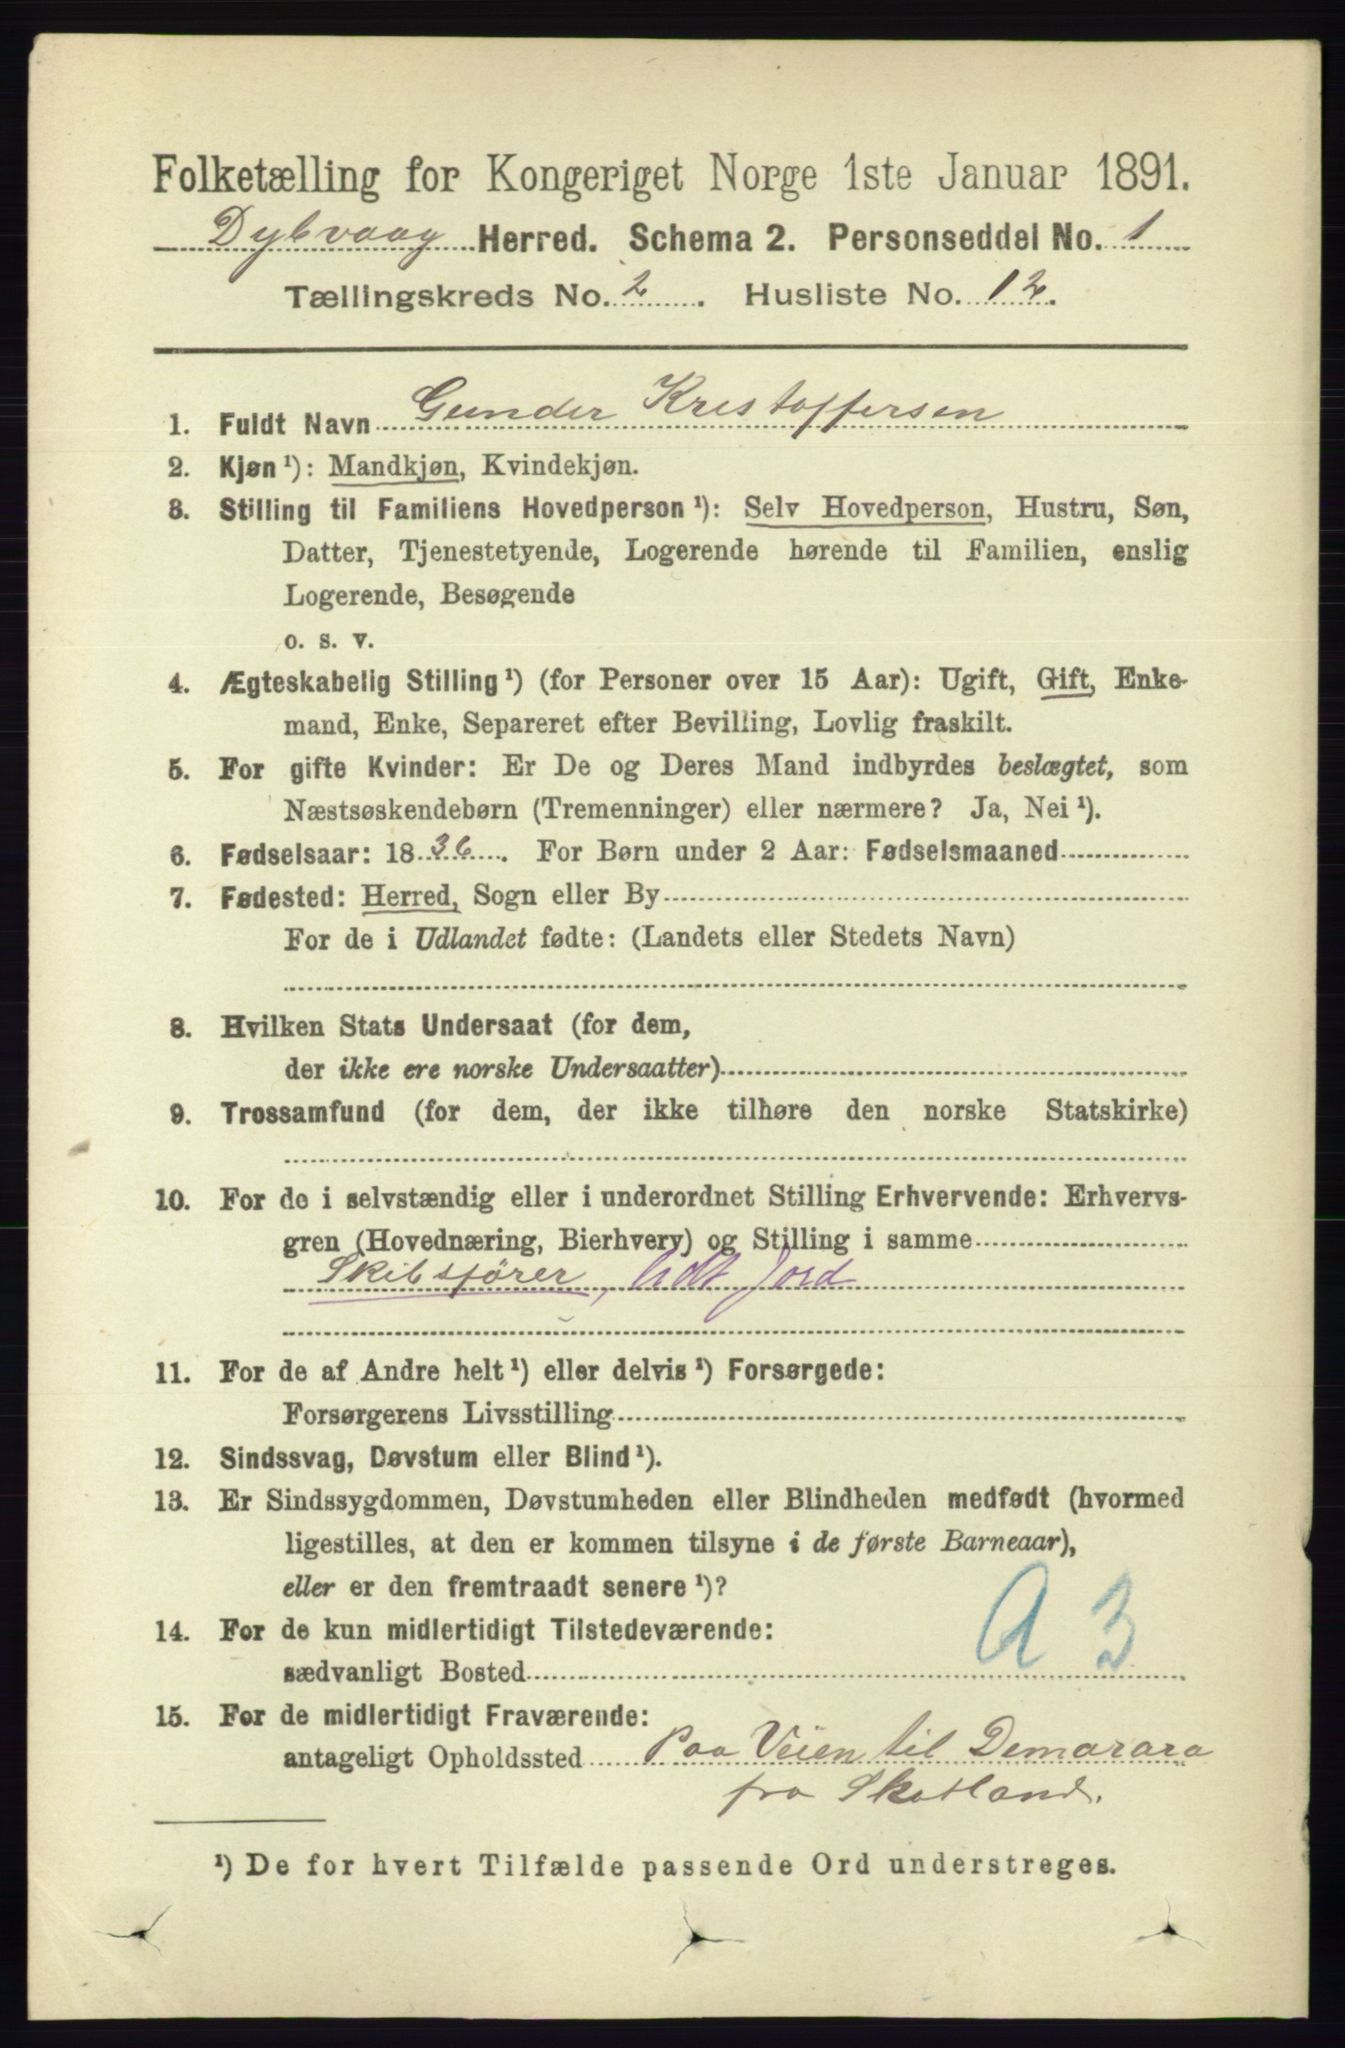 Folketælling for Kongeriget Norge 1ste Januar 1891.
Dybvaag Herred. Schema 2. Personseddel No. 1
Tællingskreds No. 2. Husliste No. 12.
1. Fuldt Navn Gunder Kristoffersen
2. Kjøn ¹): Mandkjøn, Kvindekjøn.
3. Stilling til Familiens Hovedperson ¹): Selv Hovedperson, Hustru, Søn,
Datter, Tjenestetyende, Logerende hørende til Familien, enslig
Logerende, Besøgende
o. s. v.
4. Ægteskabelig Stilling ¹) (for Personer over 15 Aar): Ugift, Gift, Enke-
mand, Enke, Separeret efter Bevilling, Lovlig fraskilt.
5. For gifte Kvinder: Er De og Deres Mand indbyrdes beslægtet, som
Næstsøskendebørn (Tremenninger) eller nærmere? Ja, Nei ¹).
6. Fødselsaar: 1836. For Børn under 2 Aar: Fødselsmaaned
7. Fødested: Herred, Sogn eller By
For de i Udlandet fødte: (Landets eller Stedets Navn)
8. Hvilken Stats Undersaat (for dem,
der ikke ere norske Undersaatter)
9. Trossamfund (for dem, der ikke tilhøre den norske Statskirke)
10. For de i selvstændig eller i underordnet Stilling Erhvervende: Erhvervs-
gren (Hovednæring, Bierhverv) og Stilling i samme
Skibsfører, lidt Jord
11. For de af Andre helt ¹) eller delvis ¹) Forsørgede:
Forsørgerens Livsstilling
12. Sindssvag, Døvstum eller Blind ¹).
13. Er Sindssygdommen, Døvstumheden eller Blindheden medfødt (hvormed
ligestilles, at den er kommen tilsyne i de første Barneaar),
eller er den fremtraadt senere ¹)?
A 3
14. For de kun midlertidigt Tilstedeværende:
sædvanligt Bosted
15. For de midlertidigt Fraværende:
antageligt Opholdssted Paa Veien til Demarara
fra Skotland.
¹) De for hvert Tilfælde passende Ord understreges.